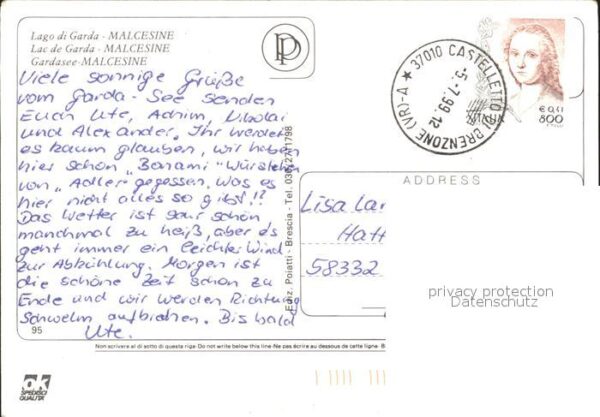 Lago di Garda - MALCESINE
Lac de Garda - MALCESINE
Gardasee-MALCESINE
Viele sonnige Grüße
vom Garda-See senden
Euch Ute, Achim, Nikolai
und Alexander. Ihr werdet
es kaum glauben, wir haben
hier schon "Bonami" Würstchen
von "Adler" gegessen. Was es
hier nicht alles so gibt!!
Das Wetter ist sehr schön
manchmal zu heiß, aber es
geht immer ein leichter Wind
zur Abkühlung. Morgen ist
die schöne Zeit schon zu
Ende und wir werden Richtung
Schwelm aufbrechen. Bis bald
Ute.
95
Ediz. Poiatti - Brescia - Tel.
37010 CASTELLETTO BRENZONE (VR)-A
-5.-7.99.12
ITALIA
€ 0,41
800
ADDRESS
Lisa
Hatt
58332
privacy protection
Datenschutz
Non scrivere al di sotto di questa riga-Do not write below this line-Ne pas écrire au dessous de cette ligne
ok
SPEDISCI
QUALITA'